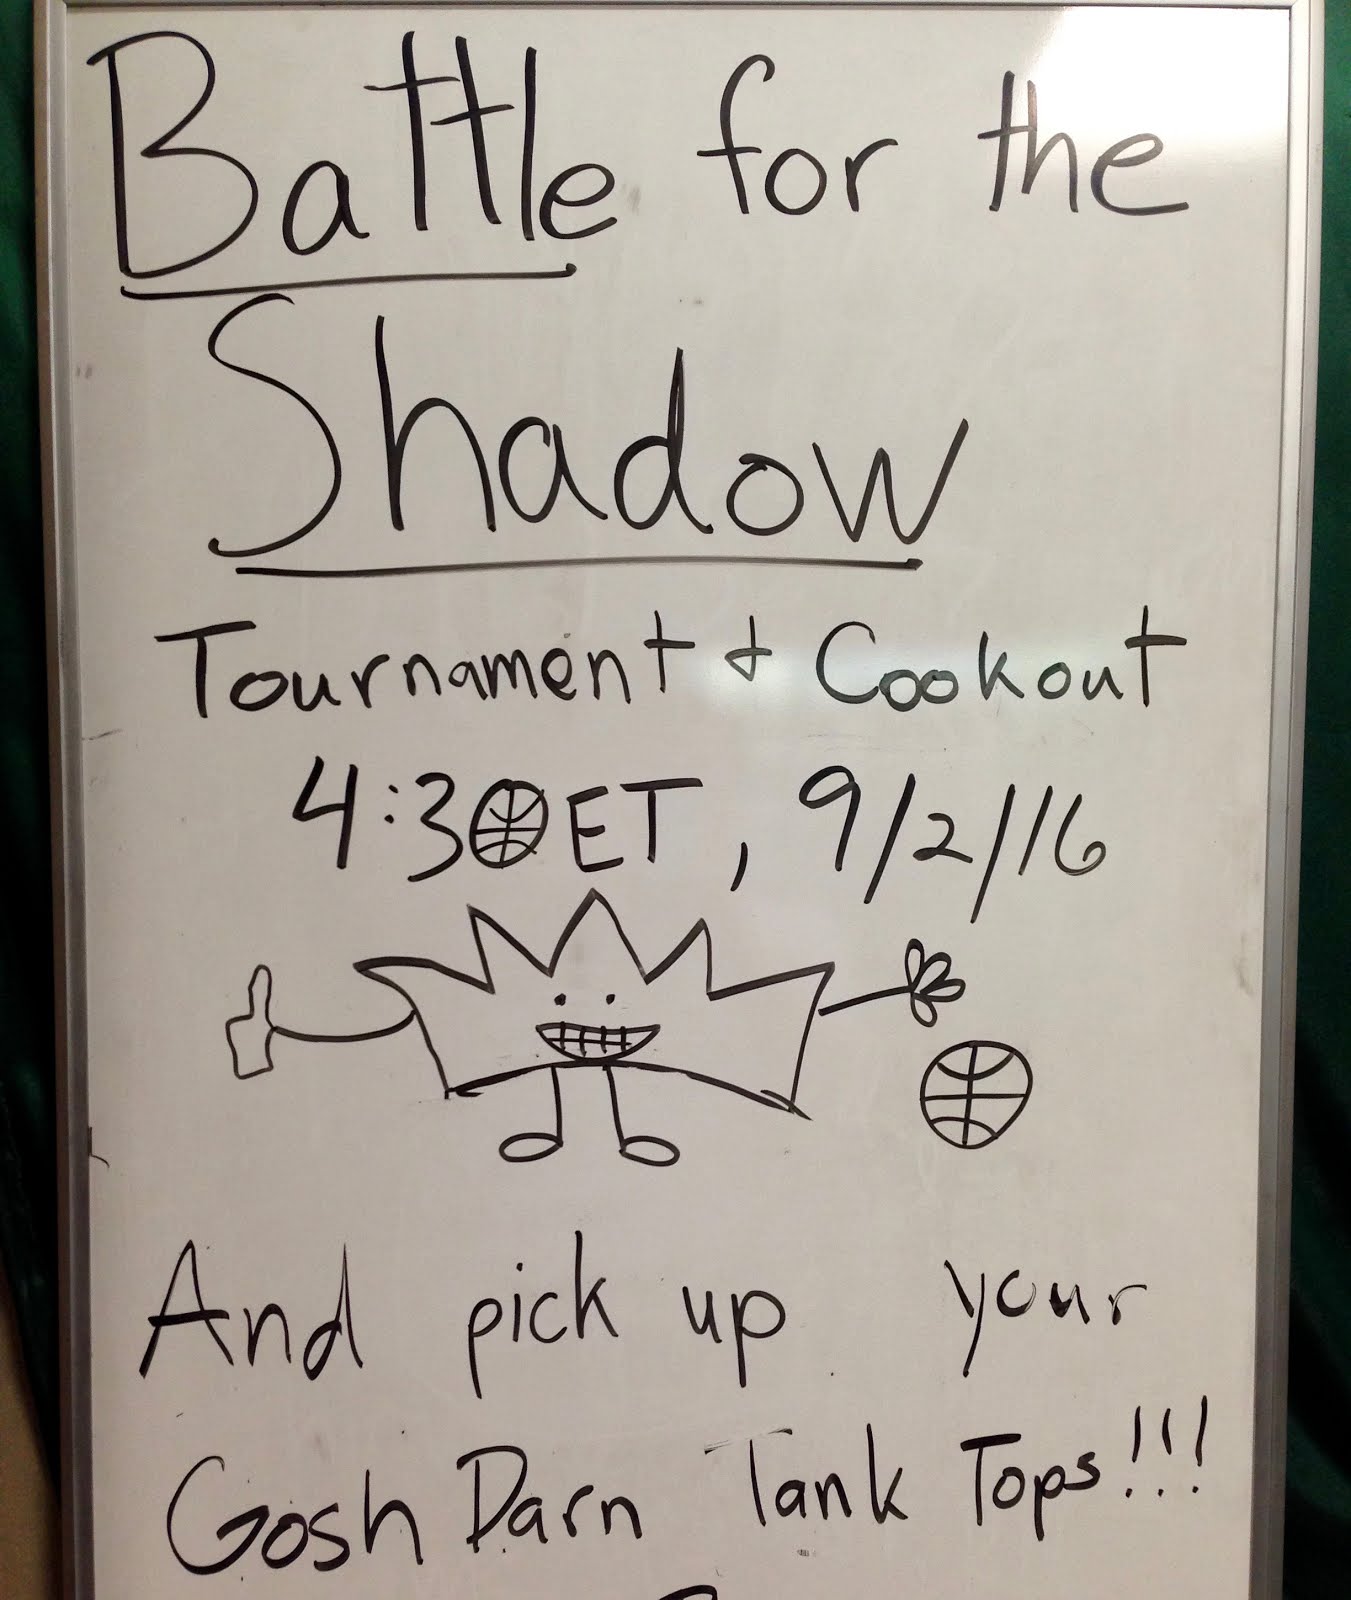 Battle for the
Shadow
Tournament & Cookout
4:30 ET, 9/2/16
And pick up your
Gosh Darn Tank Tops!!!